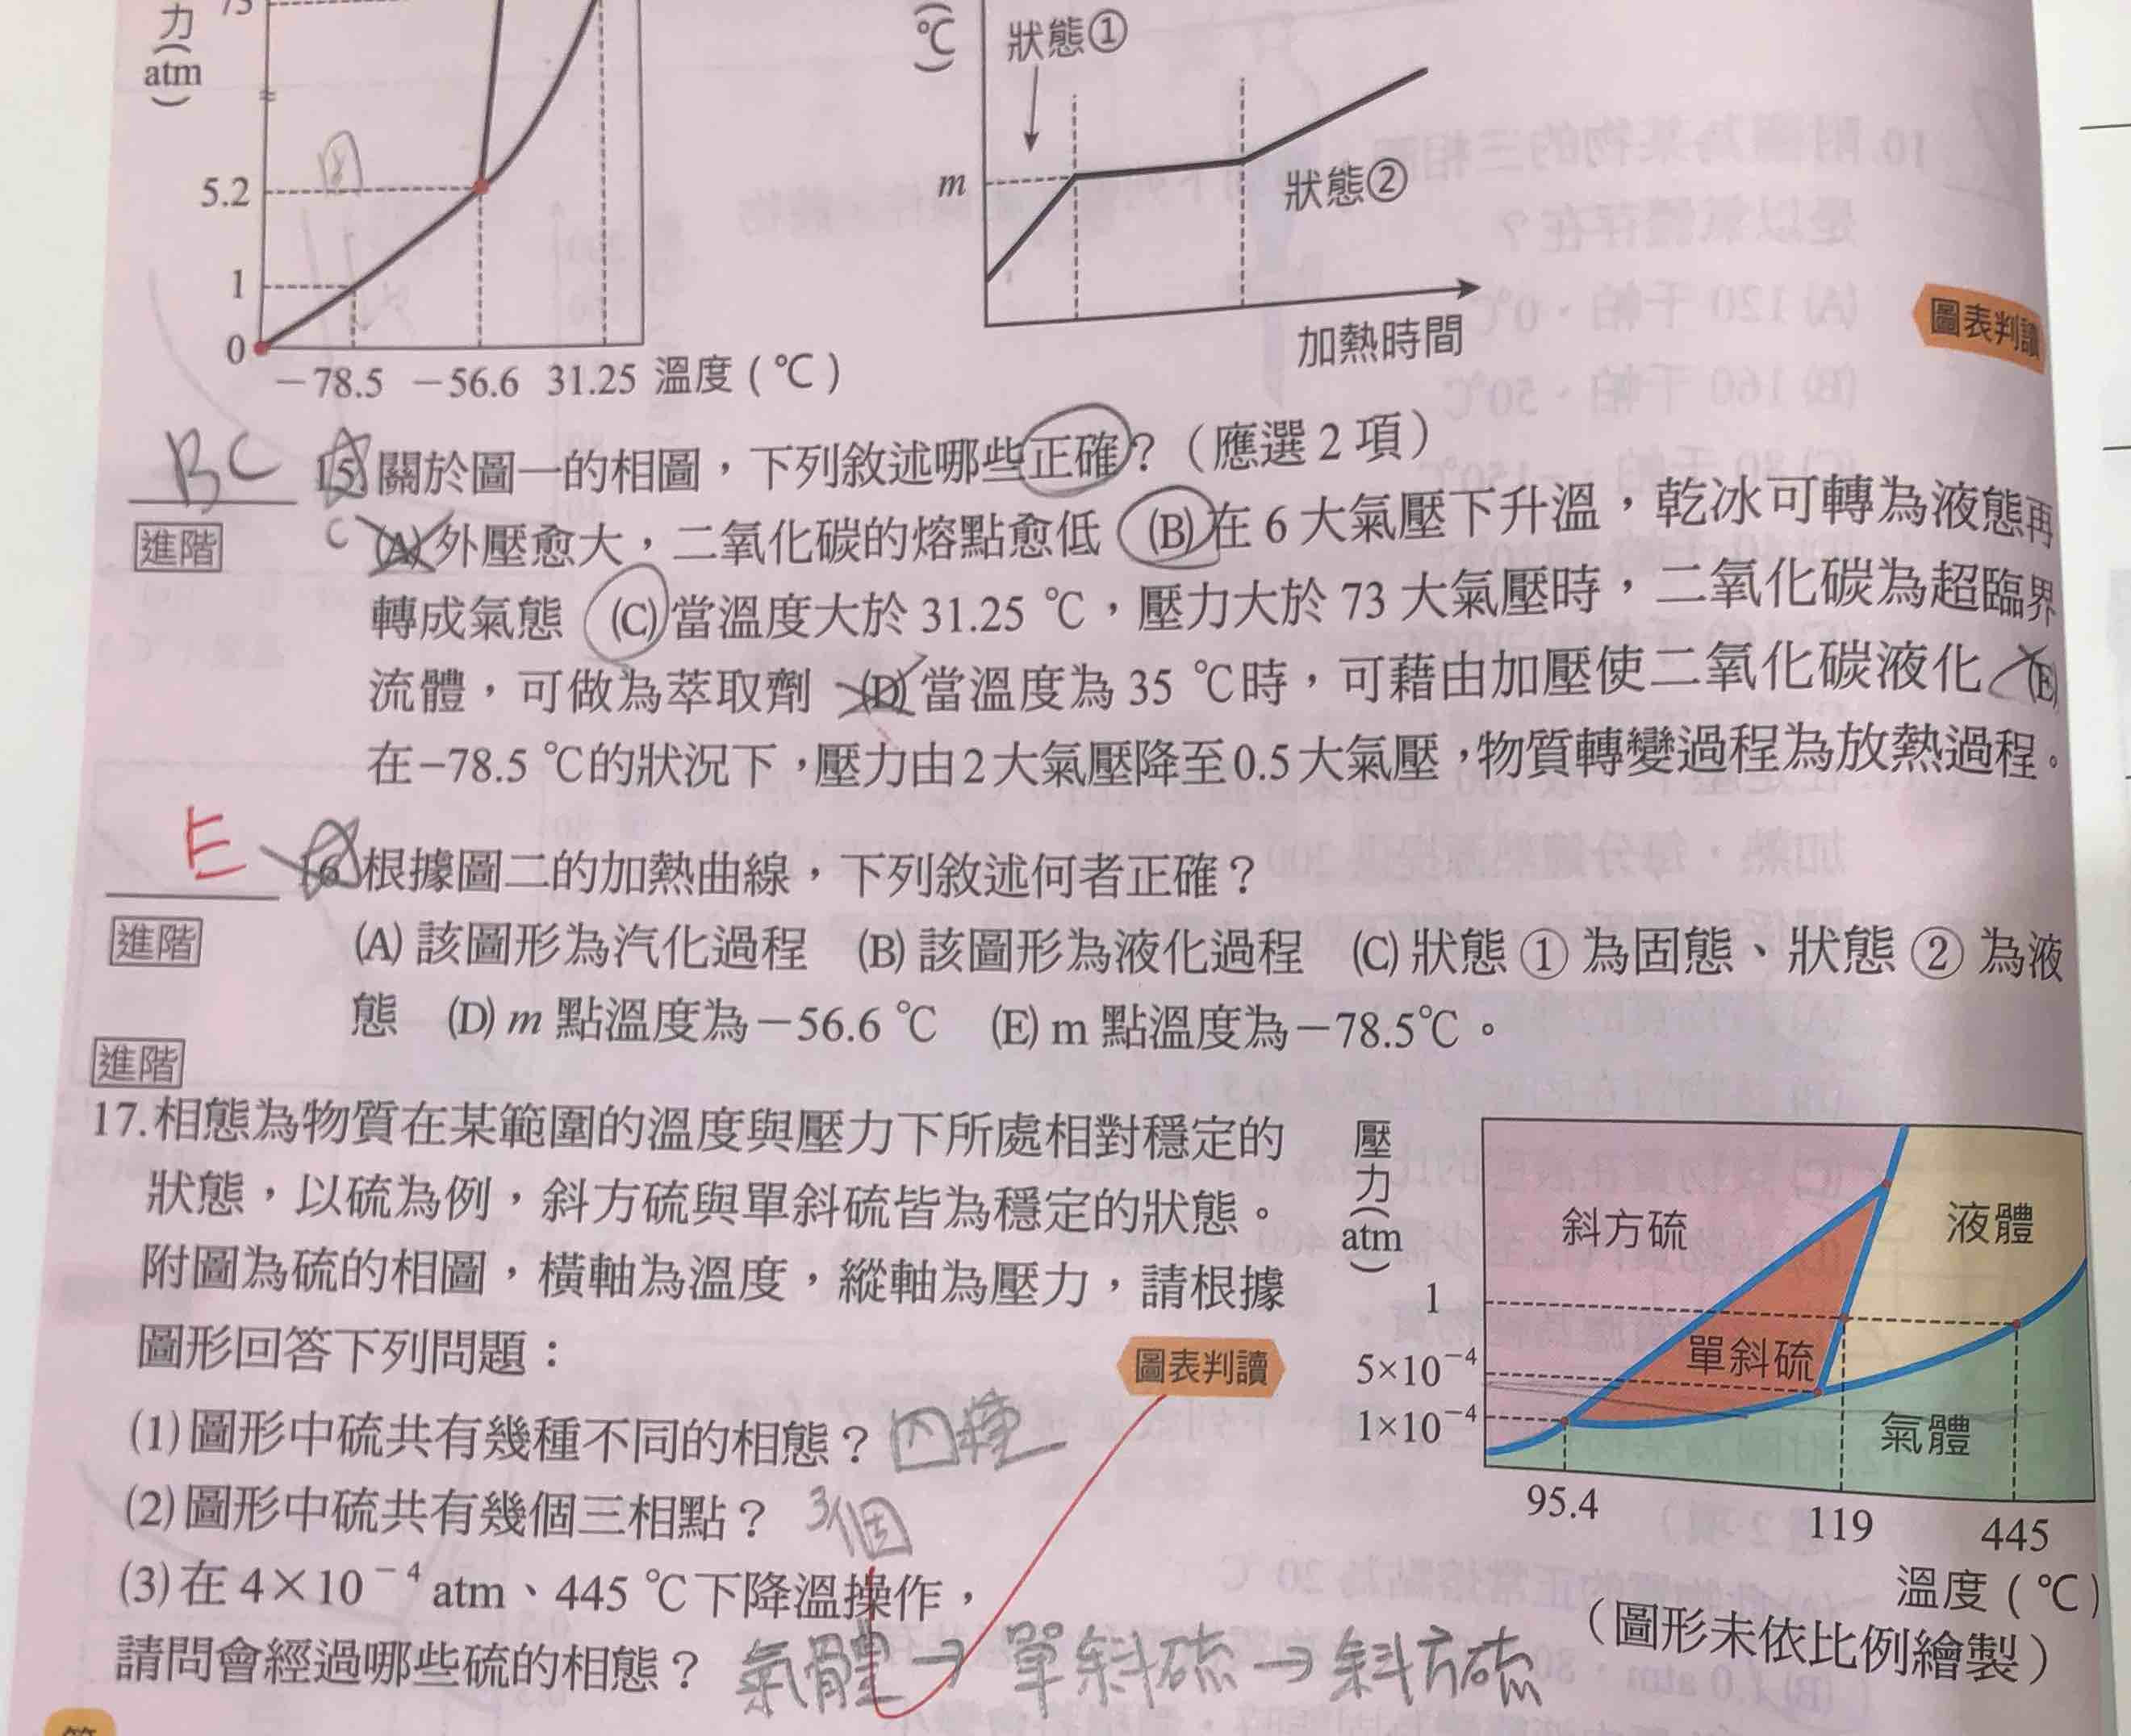 力
(atm)
73
5.2
1
0
−78.5 −56.6 31.25 溫度(℃)
(℃)
狀態①
m
狀態②
加熱時間
圖表判讀
BC 15.關於圖一的相圖，下列敘述哪些正確？（應選2項）
進階 C (A)外壓愈大，二氧化碳的熔點愈低 (B)在6大氣壓下升溫，乾冰可轉為液態再
轉成氣態 (C)當溫度大於31.25 ℃，壓力大於73大氣壓時，二氧化碳為超臨界
流體，可做為萃取劑 (D)當溫度為35 ℃時，可藉由加壓使二氧化碳液化 (E)
在−78.5 ℃的狀況下，壓力由2大氣壓降至0.5大氣壓，物質轉變過程為放熱過程。
E 16.根據圖二的加熱曲線，下列敘述何者正確？
進階 (A)該圖形為汽化過程 (B)該圖形為液化過程 (C)狀態①為固態、狀態②為液
態 (D) m 點溫度為−56.6 ℃ (E) m 點溫度為−78.5℃。
進階
17.相態為物質在某範圍的溫度與壓力下所處相對穩定的
狀態，以硫為例，斜方硫與單斜硫皆為穩定的狀態。
附圖為硫的相圖，橫軸為溫度，縱軸為壓力，請根據
圖形回答下列問題：
圖表判讀
(1)圖形中硫共有幾種不同的相態？ 四種
(2)圖形中硫共有幾個三相點？ 3個
(3)在 4×10⁻⁴ atm、445 ℃下降溫操作，
請問會經過哪些硫的相態？ 氣體→單斜硫→斜方硫
壓力(atm)
斜方硫
液體
1
單斜硫
5×10⁻⁴
1×10⁻⁴
氣體
95.4 119 445
溫度(℃)
（圖形未依比例繪製）